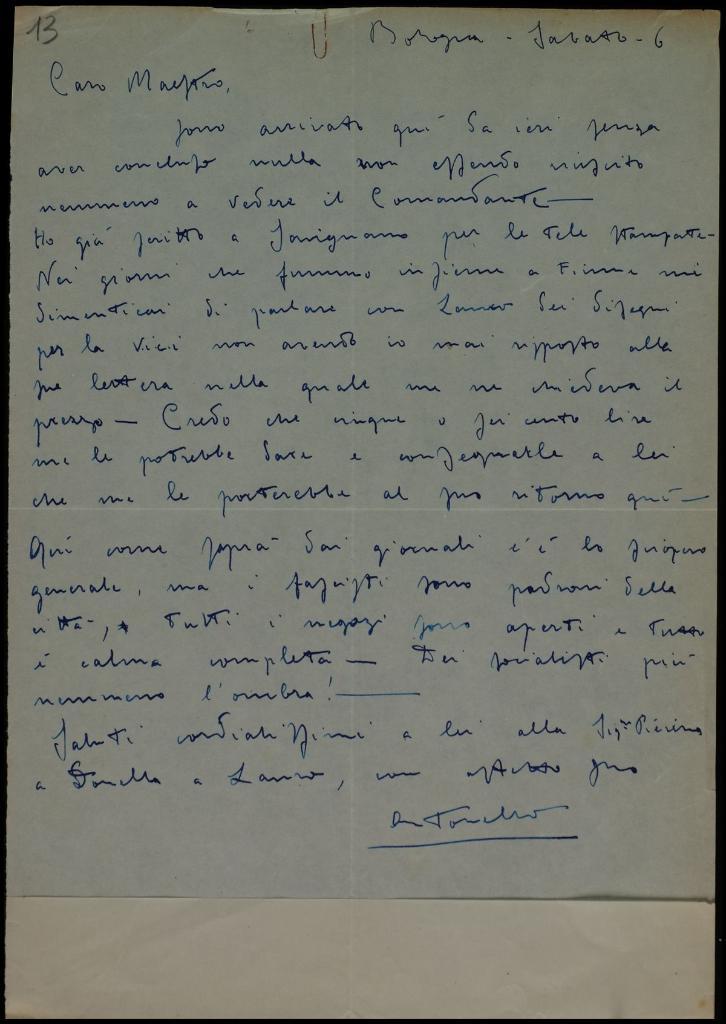 13
Bologna - Sabato - 6
Caro Maestro,
sono arrivato quì da ieri senza
aver concluso nulla non essendo riuscito
nemmeno a vedere il Comandante —
Ho già scritto a Savignano per le tele stampate -
Nei giorni che fummo insieme a Fiume mi
dimenticai di parlare con Lauro dei disegni
per la Vici non avendo io mai risposto alla
sua lettera nella quale me ne chiedeva il
prezzo — Credo che cinque o sei cento lire
me le potrebbe dare e consegnarle a lei
che me le porterebbe al suo ritorno quì —
Quì come saprà dai giornali c'è lo sciopero
generale, ma i fascisti sono padroni della
città, tutti i negozi sono aperti e tutto
è calma completa — Dei socialisti più
nemmeno l'ombra! —
Saluti cordialissimi a lei alla Sigra
a Donella a Lauro, con affetto suo
Antonello